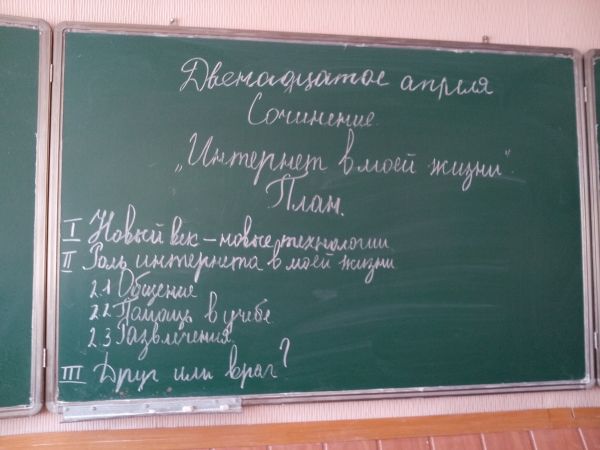 Двенадцатое апреля
Сочинение.
„Интернет в моей жизни".
План.
I Новый век – новые технологии
II Роль интернета в моей жизни
2.1 Общение
2.2 Помощь в учебе
2.3 Развлечения
III Друг или враг?